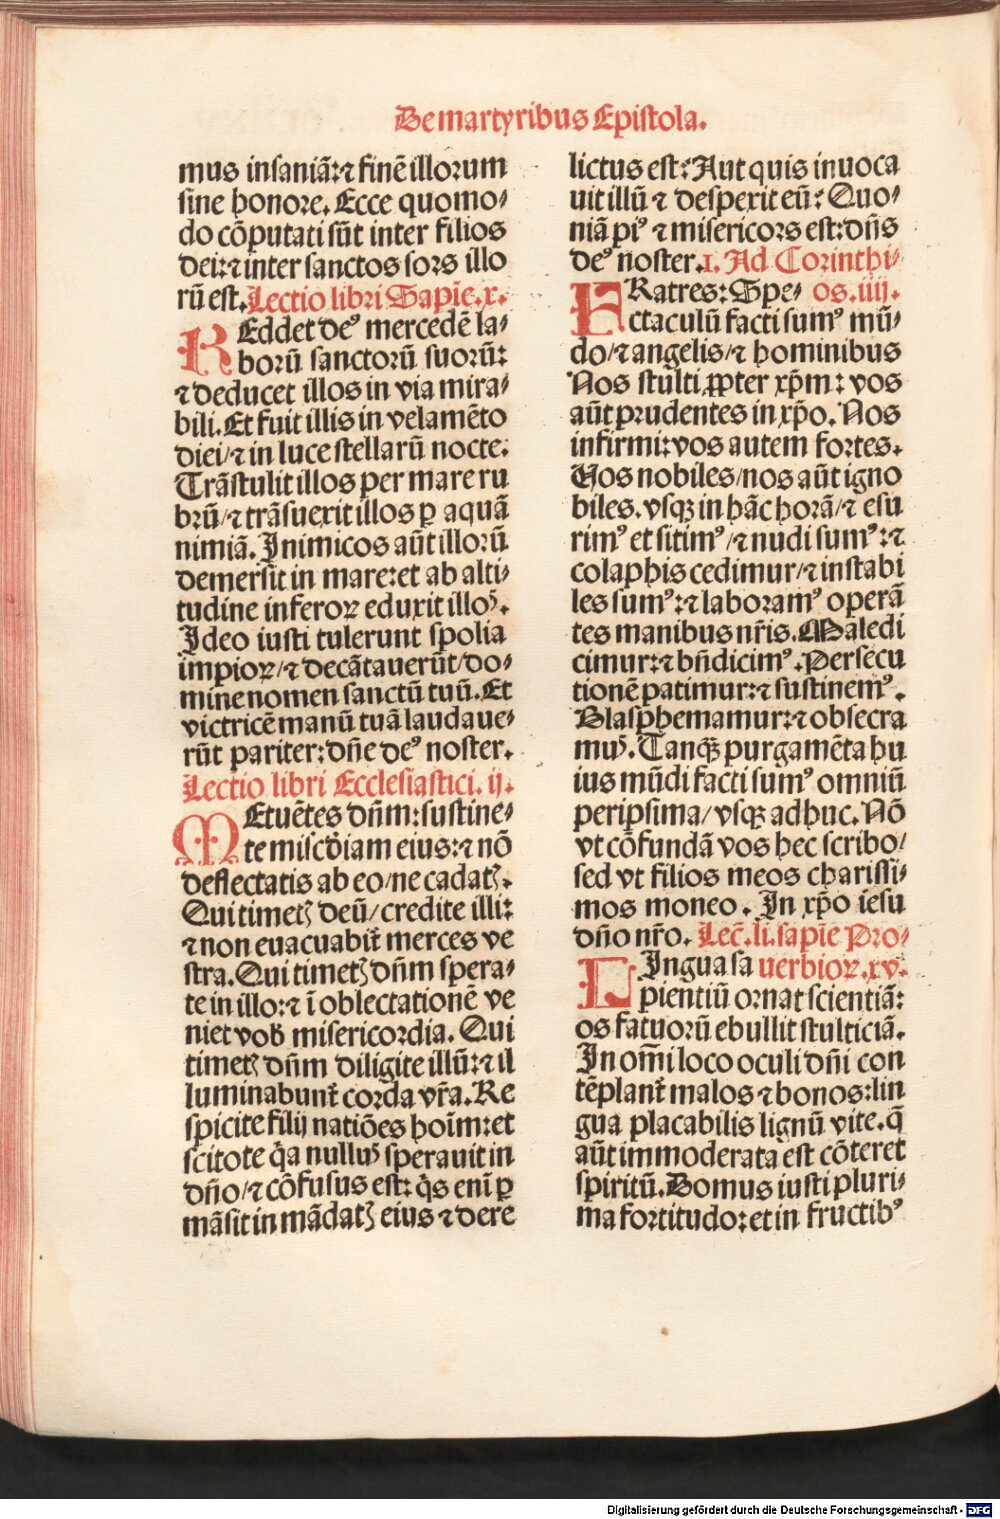 De martyribus Epistola.
mus insaniā:⁊ finē illorum
sine honore. Ecce quomo⸗
do cōputati sūt inter filios
dei:⁊ inter sanctos sors illo
rū est. Lectio libri Sapiē. x.
REddet deꝰ mercedē la⸗
borū sanctorū suorū:
⁊ deducet illos in via mira⸗
bili. Et fuit illis in velamēto
diei/⁊ in luce stellarū nocte.
Trāstulit illos per mare ru
brū/⁊ trāsuexit illos ꝑ aquā
nimiā. Inimicos aūt illorū
demersit in mare:et ab alti⸗
tudine inferoꝝ eduxit illoꝰ.
Ideo iusti tulerunt spolia
impioꝝ/⁊ decātauerūt/do⸗
mine nomen sanctū tuū. Et
victricē manū tuā laudaue⸗
rūt pariter:dn̄e deꝰ noster.
Lectio libri Ecclesiastici. ij.
MEtuētes dn̄m:sustine⸗
te miscd̄iam eius:⁊ nō
deflectatis ab eo/ne cadatꝫ.
Qui timetꝫ deū/credite illi:
⁊ non euacuabit̄ merces ve
stra. Qui timetꝫ dn̄m spera⸗
te in illo:⁊ ī oblectationē ve
niet vob̄ misericordia. Qui
timetꝫ dn̄m diligite illū:⁊ il
luminabunt̄ corda vr̄a. Re
spicite filij natiōes hoīm:et
scitote q̄a nulluꝰ sperauit in
dn̄o/⁊ cōfusus est: q̄s enī ꝑ
māsit in mādatꝫ eius ⁊ dere
lictus est: Aut quis inuoca
uit illū ⁊ despexit eū: Quo⸗
niā piꝰ ⁊ misericors est:dn̄s
deꝰ noster. I. Ad Corinthi⸗
FRatres: Spe⸗ os. iiij.
ctaculū facti sumꝰ mū⸗
do/⁊ angelis/⁊ hominibus
Nos stulti ꝓpter xp̄m: vos
aūt prudentes in xp̄o. Nos
infirmi:vos autem fortes.
Vos nobiles/nos aūt igno
biles. vsqꝫ in hāc horā/⁊ esu
rimꝰ et sitimꝰ/⁊ nudi sumꝰ:⁊
colaphis cedimur/⁊ instabi
les sumꝰ:⁊ laboramꝰ operā
tes manibus nr̄is. Maledi
cimur:⁊ bn̄dicimꝰ. Persecu
tionē patimur:⁊ sustinemꝰ.
Blasphemamur:⁊ obsecra
muꝰ. Tanqꝫ purgamēta hu
ius mūdi facti sumꝰ omniū
peripsima/vsqꝫ adhuc. Nō
vt cōfundā vos hec scribo/
sed vt filios meos charissi⸗
mos moneo. In xp̄o iesu
dn̄o nr̄o. Lec̄. li. sapiē Pro⸗
LIngua sa uerbioꝝ. xv.
pientiū ornat scientiā:
os fatuorū ebullit stulticiā.
In om̄i loco oculi dn̄i con
tēplant̄ malos ⁊ bonos:lin
gua placabilis lignū vite. q̄
aūt immoderata est cōteret
spiritū. Domus iusti pluri⸗
ma fortitudo:et in fructibꝰ
Digitalisierung gefördert durch die Deutsche Forschungsgemeinschaft - DFG